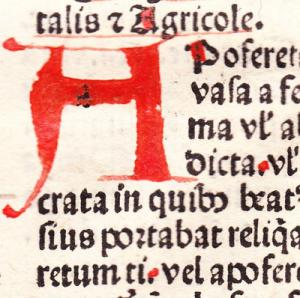 talis ⁊ Agricole.
APoferet
vaſa a fe
ma vl̓ al
dicta. vl̓
crata in quibꝰ beat
ſius portabat reliq̃a
retum ti. vel apofere